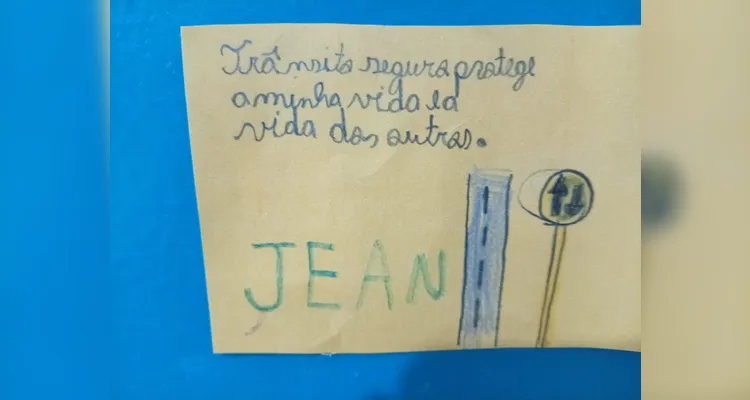 Trânsito seguro protege
a minha vida e a
vida dos outros.
JEAN